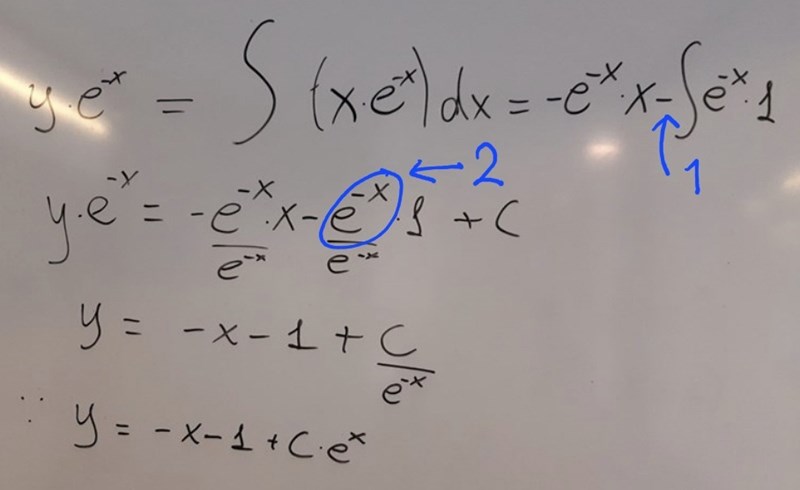 y·e⁻ˣ = ∫ (x·e⁻ˣ) dx = -e⁻ˣ·x-∫e⁻ˣ·1
↑1
y·e⁻ˣ = -e⁻ˣ·x/e⁻ˣ - e⁻ˣ·1/e⁻ˣ + C ←2
y = -x-1+C/e⁻ˣ
∵ y = -x-1+C·eˣ